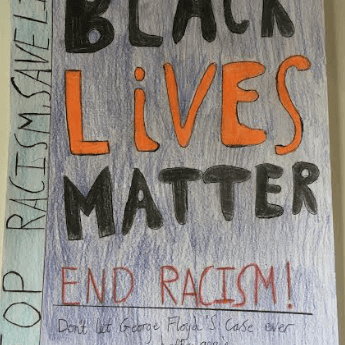 BLACK
LiVES
MATTER
END RACISM!
Don't let George Floyd's case ever
TOP RACISM, SAVE LI